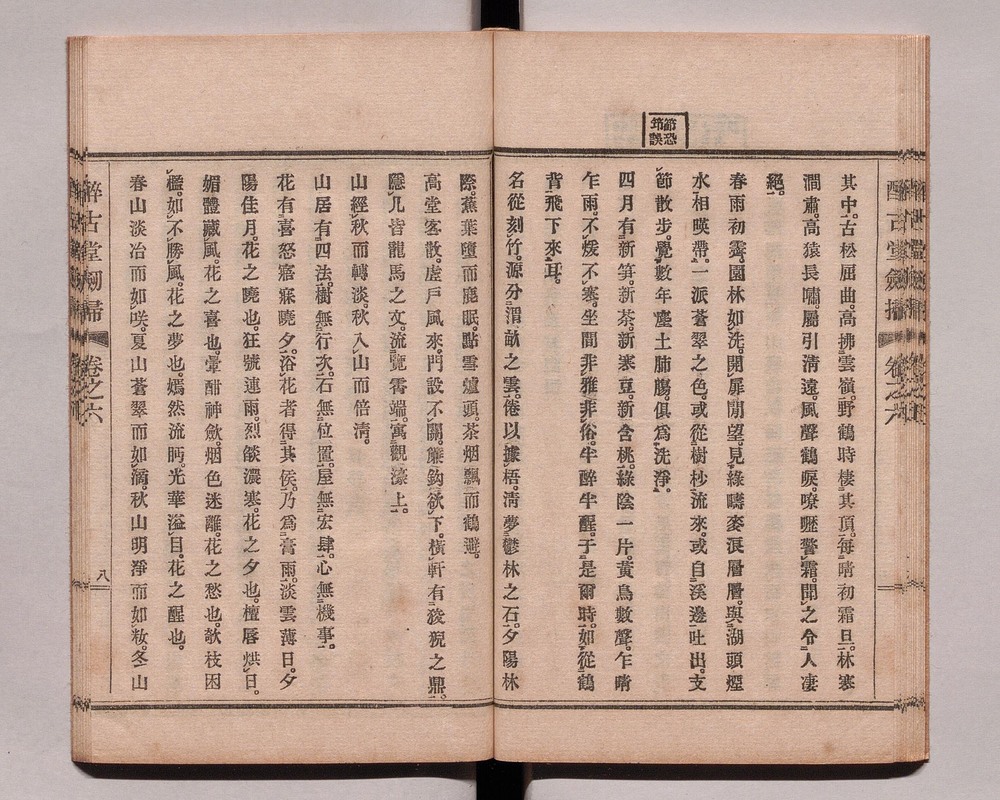 節恐
筇誤
其中。古松屈曲。高拂雲嶺。野鶴時棲其頂。每晴初霜旦。林寒
澗肅。高猿長嘯。屬引淸遠。風聲鶴唳。嘹嚦警霜。聞之令人凄
絕。
春雨初霽。園林如洗。開扉閒望。見綠疇麥浪層層。與湖頭煙
水相暎帶。一派蒼翠之色。或從樹杪流來。或自溪邊吐出。支
節散步。覺數年塵土肺膓。俱爲洗淨。
四月有新笋。新茶。新寒豆。新含桃。綠陰一片。黃鳥數聲。乍晴
乍雨。不煖不寒。坐間非雅非俗。半醉半醒。于是爾時。如從鶴
背飛下來耳。
名從刻竹。源分渭畝之雲。倦以據梧。淸夢鬱林之石。夕陽林
際。蕉葉墮而鹿眠。點雪爐頭。茶烟飄而鶴避。
高堂客散。虛戶風來。門設不關。簾鈎欲下。橫軒有狻猊之鼎。
隱几皆龍馬之文。流覽霄端。寓觀濠上。
山經秋而轉淡。秋入山而倍淸。
山居有四法。樹無行次。石無位置。屋無宏肆。心無機事。
花有喜怒寤寐曉夕。浴花者得其侯。乃爲膏雨。淡雲薄日。夕
陽佳月。花之曉也。狂號連雨。烈燄濃寒。花之夕也。檀唇烘日。
媚體藏風。花之喜也。暈酣神斂。烟色迷離。花之愁也。欹枝困
檻。如不勝風。花之夢也。嫣然流眄。光華溢目。花之醒也。
春山淡冶而如咲。夏山蒼翠而如滴。秋山明淨而如妝。冬山
醉古堂劒掃
卷之六
八